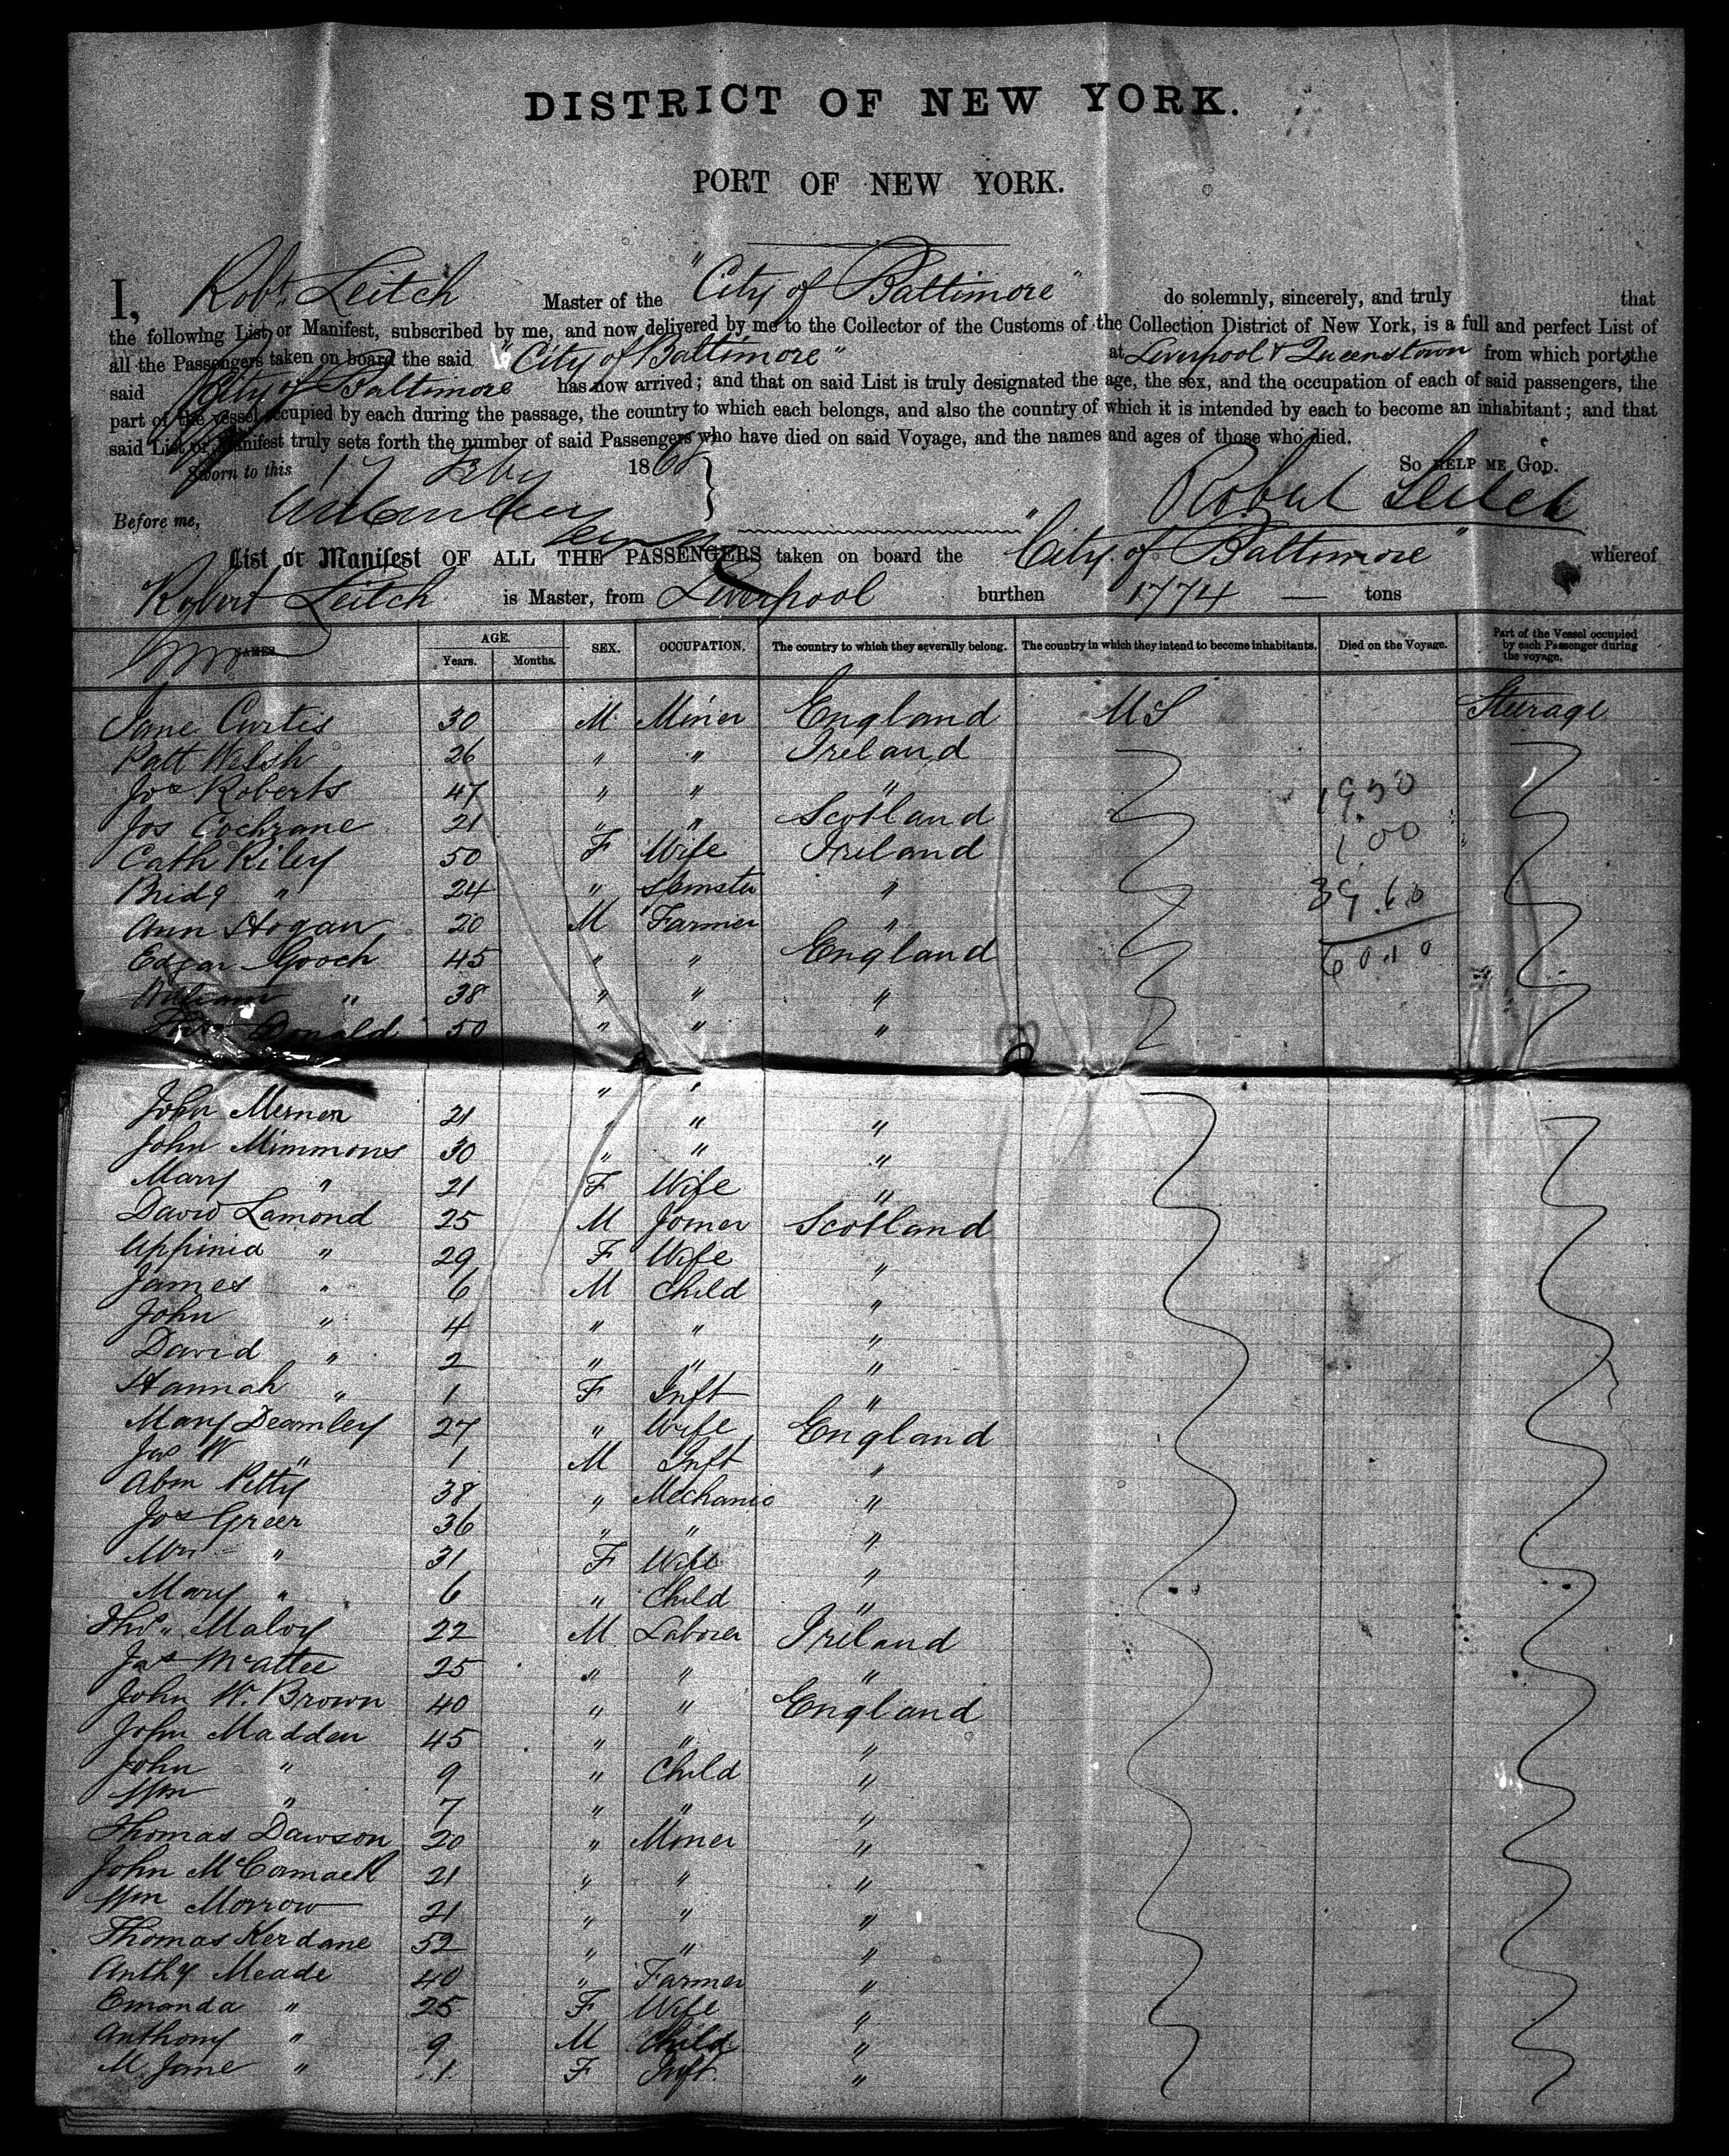 DISTRICT OF NEW YORK.
PORT OF NEW YORK.
I, Robt. Leitch Master of the "City of Baltimore" do solemnly, sincerely, and truly that
the following List or Manifest, subscribed by me, and now delivered by me to the Collector of the Customs of the Collection District of New York, is a full and perfect List of
all the Passengers taken on board the said "City of Baltimore" at Liverpool & Queenstown from which ports the
said City of Baltimore has now arrived; and that on said List is truly designated the age, the sex, and the occupation of each of said passengers, the
part of the vessel occupied by each during the passage, the country to which each belongs, and also the country of which it is intended by each to become an inhabitant; and that
said List or Manifest truly sets forth the number of said Passengers who have died on said Voyage, and the names and ages of those who died.
Sworn to this 17 Feby 1868 So HELP ME GOD.
Before me, Robert Leitch
List or Manifest OF ALL THE PASSENGERS taken on board the "City of Baltimore" whereof
Robert Leitch is Master, from Liverpool burthen 1774 — tons
NAMES. AGE. Years. Months. SEX. OCCUPATION. The country to which they severally belong. The country in which they intend to become inhabitants. Died on the Voyage. Part of the Vessel occupied by each Passenger during the voyage.
Jane Curtis 30 M Miner England US Steerage
Patt Welsh 26 " " Ireland
Jos Roberts 47 " " "
Jos Cochrane 21 " " Scotland
Cath Riley 50 F Wife Ireland
Bridg " 24 " Spinster "
Ann Hogan 20 M Farmer "
Edgar Gooch 45 " " England
William " 38 " " "
Donald 50 " " "
" "
John 21 " " "
John Mimmons 30 " " "
Mary " 21 F Wife "
David Lamond 25 M Joiner Scotland
" 29 F Wife "
James " 6 M Child "
John " 4 " " "
David " 2 " " "
Hannah " 1 F Inft "
Mary Dearnley 27 " Wife England
Jas W " 1 M Inft "
Abm Petty 38 " Mechanic "
Jos Greer 36 " " "
Mrs " 31 F Wife "
Mary " 6 " Child "
Thos. Maloy 22 M Laborer Ireland
Jas McAttee 25 " " "
John W. Brown 40 " " England
John Madden 45 " " "
John " 9 " Child "
Wm " 7 " " "
Thomas Dawson 20 " Miner "
John McCormack 21 " " "
Wm Morrow 21 " " "
Thomas Kerdane 52 " " "
Anthy Meade 40 " Farmer "
Emanda " 25 F Wife "
Anthony " 9 M Child "
M. Jane " 1 F Inft. "